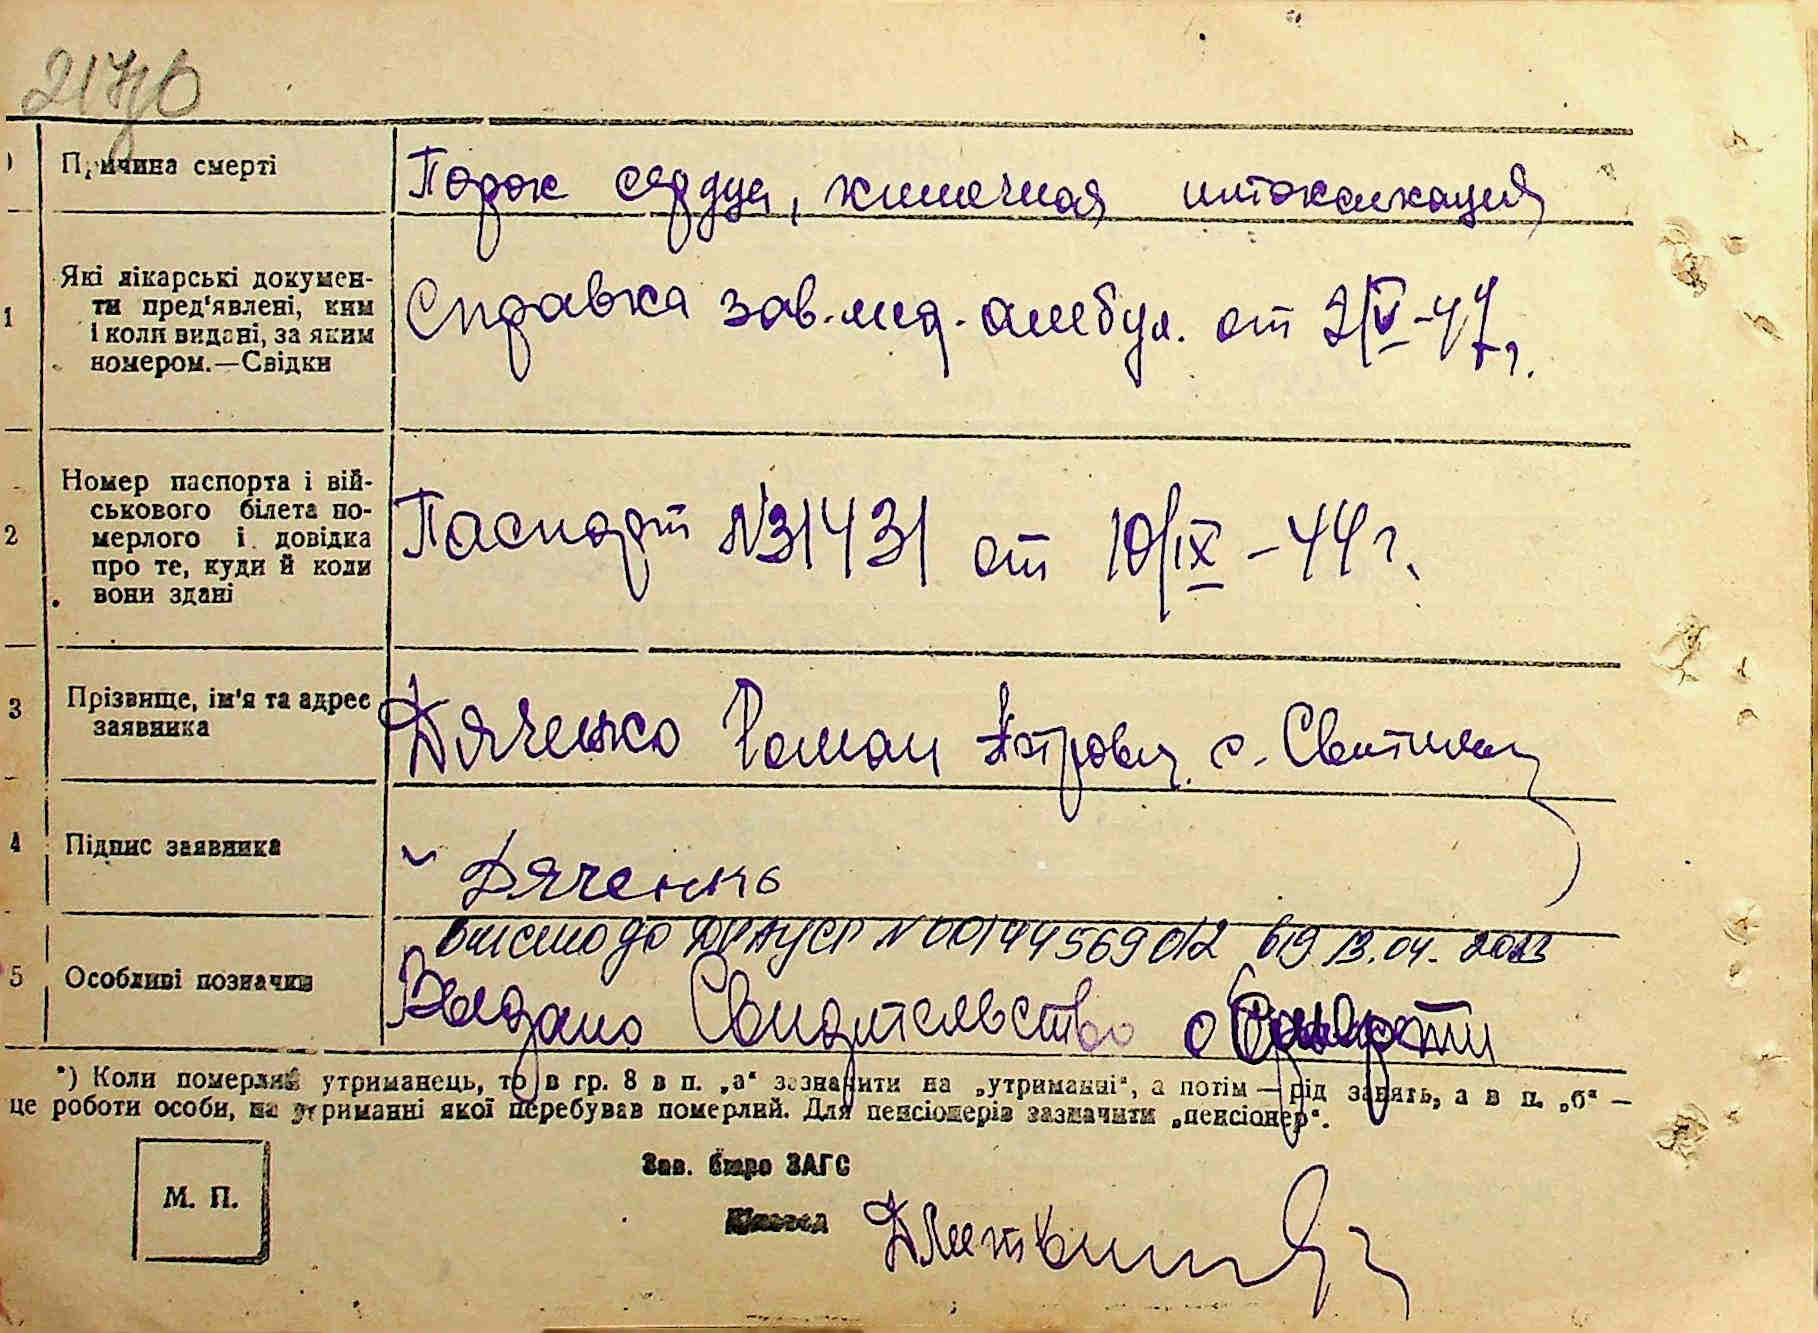 217
) Причина смерті
Порок сердца, кишечная интоксикация
1 Які лікарські докумен-
ти пред'явлені, ким
і коли видані, за яким
номером.—Свідки
Справка зав. мед. амбул. от 2/V-47 г.
2 Номер паспорта і вій-
ськового білета по-
мерлого і довідка
про те, куди й коли
вони здані
Паспорт N 31431 от 10/IX-44 г.
3 Прізвище, ім'я та адрес
заявника
Дяченко Роман Петрович с.
4 Підпис заявника
Дяченко
внесено до ДРАЦСГ N 00144569012 від 13.04.2023
5 Особливі позначки
Выдано Свидетельство о смерти
*) Коли померлий утриманець, то в гр. 8 в п. „а“ зазначити на „утриманні“, а потім — рід занять, а в п. „б“ —
це роботи особи, на утриманні якої перебував померлий. Для пенсіонерів зазначити „пенсіонер“.
Зав. бюро ЗАГС
М. П.